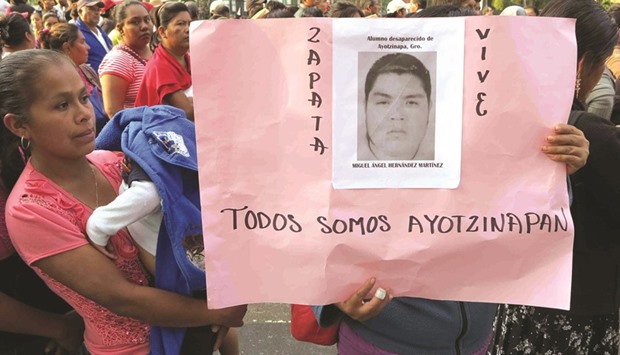 ZAPATA
Alumno desaparecido de
Ayotzinapa, Gro.
MIGUEL ÁNGEL HERNÁNDEZ MARTÍNEZ
VIVE
TODOS SOMOS AYOTZINAPAN